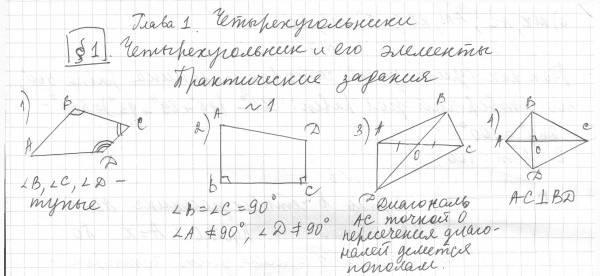 Глава 1. Четырехугольники
§ 1. Четырехугольник и его элементы
Практические задания
~ 1
1)
A
B
C
D
∠B, ∠C, ∠D –
тупые
2)
A
D
B
C
∠B = ∠C = 90°
∠A ≠ 90°, ∠D ≠ 90°
3)
A
B
C
O
D
Диагональ
AC точкой O
пересечения диаго-
налей делется
пополам.
4)
A
B
C
O
D
AC ⊥ BD